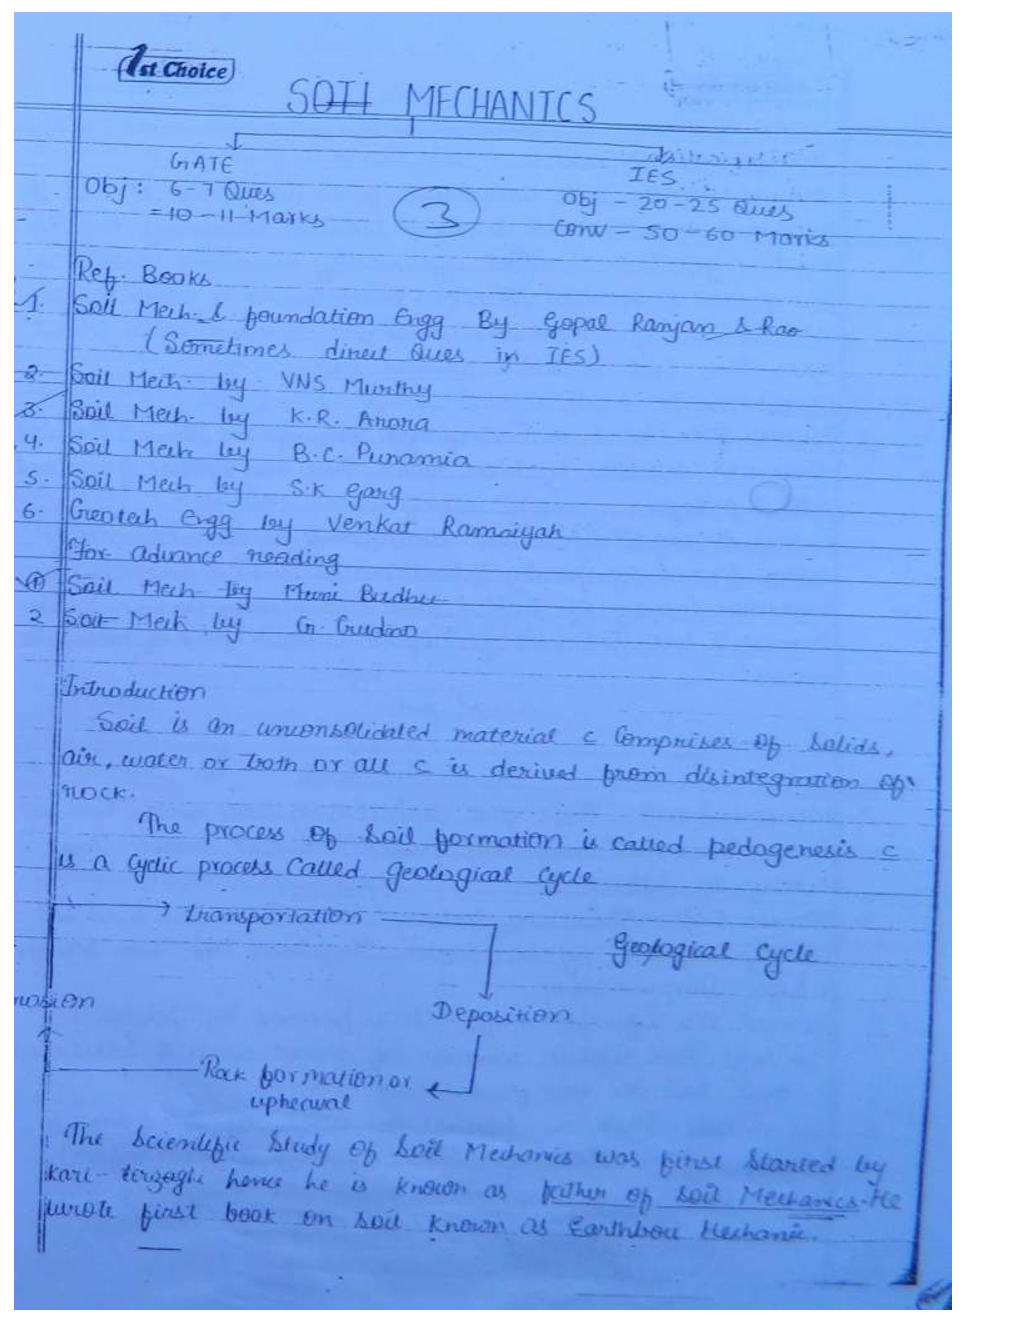 1st Choice
SOIL MECHANICS
GATE
Obj: 6-7 Ques
=10-11 Marks
3
IES
Obj - 20-25 Ques
Conv - 50-60 Marks
Ref. Books
1. Soil Mech. & foundation Engg By Gopal Ranjan & Rao
(Sometimes direct Ques in IES)
2. Soil Mech. by VNS Murthy
3. Soil Mech. by K.R. Arora
4. Soil Mech by B.C. Punamia
5. Soil Mech by S.K Garg
6. Geotech Engg by Venkat Ramaiyah
for advance reading
1 Soil Mech by Muni Budhu
2 Soil Mech by G. Gudno
Introduction
Soil is an unconsolidated material c Comprises of solids,
air, water or both or all c is derived from disintegration of
rock.
The process of soil formation is called pedogenesis c
is a cyclic process called geological cycle
transportation
Geological cycle
rosion
Deposition
Rock formation or
upheaval
The scientific study of soil Mechanics was first started by
karl-terzaghi hence he is known as father of soil Mechanics. He
wrote first book on soil known as Earthbou Mechanic.